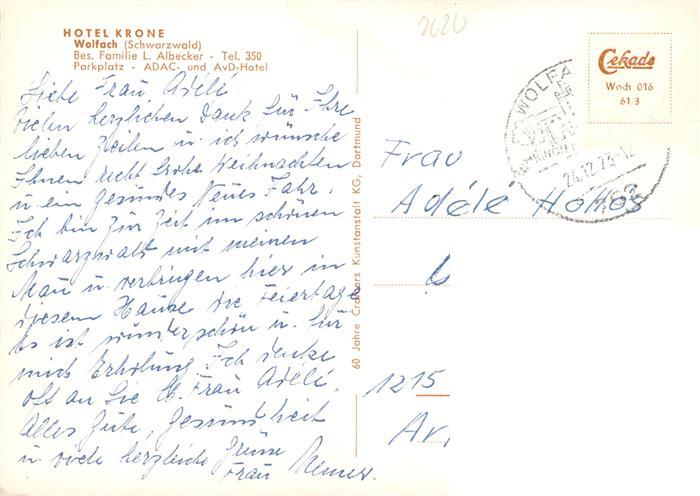 2620
HOTEL KRONE
Wolfach (Schwarzwald)
Bes. Familie L. Albecker - Tel. 350
Parkplatz - ADAC- und AvD-Hotel
Cekade
Woch 016
61.3
WOLFA
24.12.73-1
Liebe Frau Adélé
vielen herzlichen Dank für Ihre
lieben Zeilen u. ich wünsche
Ihnen recht frohe Weihnachten
u. ein gesundes Neues Jahr.
Ich bin zur Zeit im schönen
Schwarzwald mit meinem
Mann u. verbringen hier in
diesem Hause die Feiertage
Es ist wunderschön u. für
mich Erholung. Ich denke
oft an Sie lb. Frau Adélé.
Alles Gute, Gesundheit
u. viele herzliche Grüsse
Frau
60 Jahre Cramers Kunstanstalt KG, Dortmund
Frau
Adélé Hollos
1215
Ar